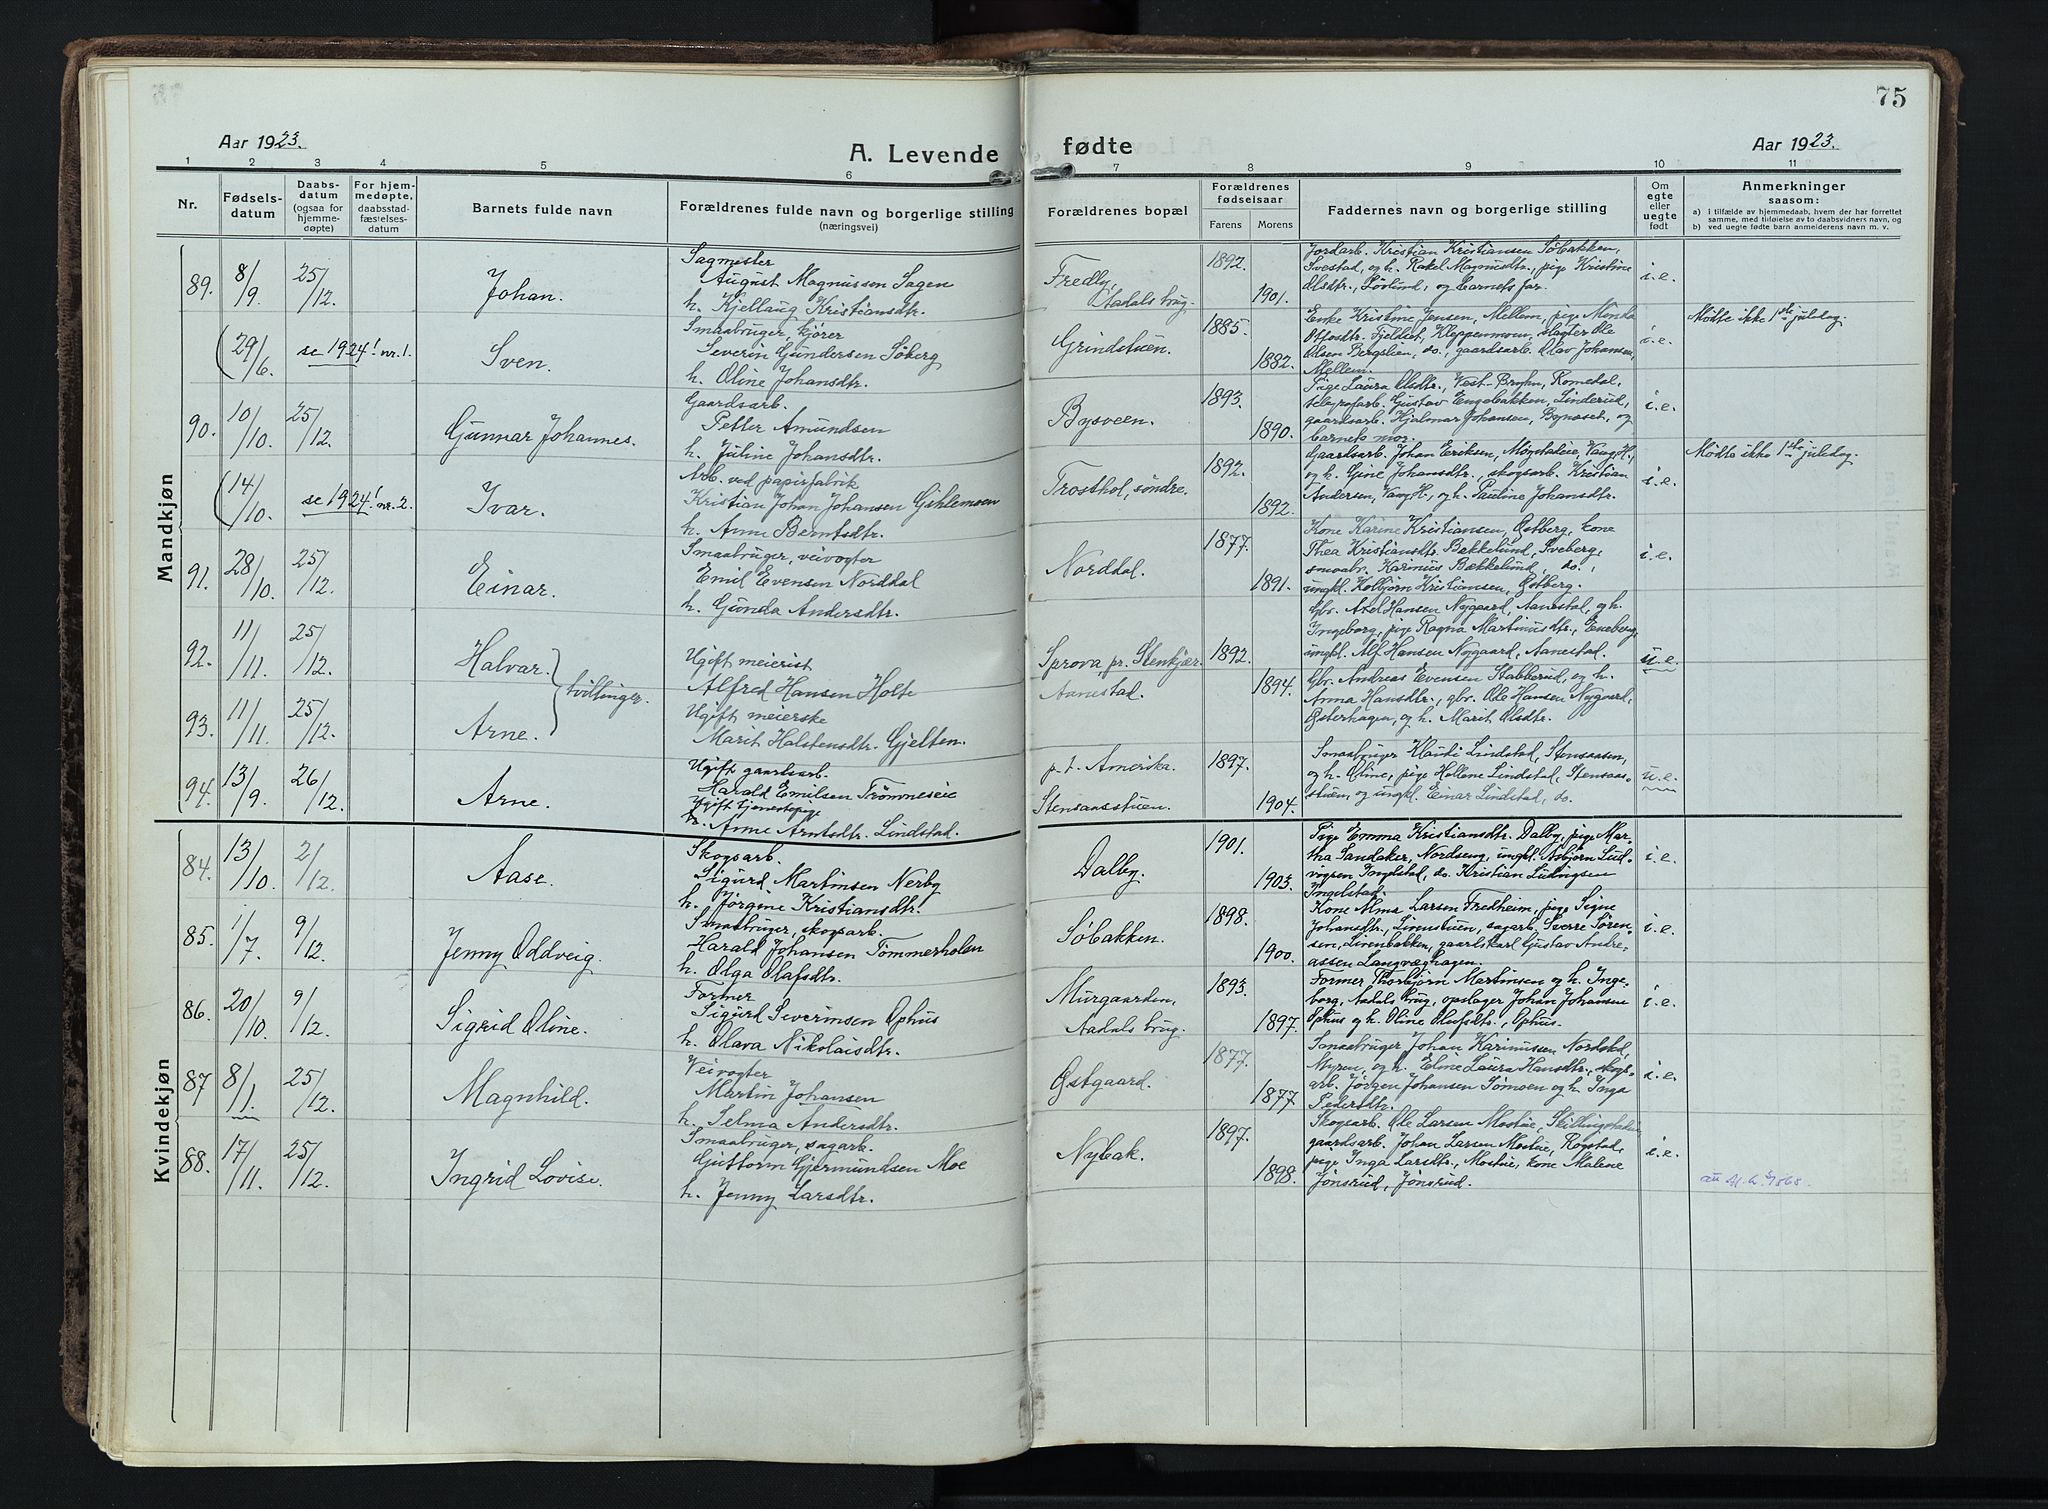 75
Aar 1923.
A. Levende fødte
Aar 1923.
1 2 3 4 5 6 7 8 9 10 11
Nr.
Fødsels-
datum
Daabs-
datum
(ogsaa for
hjemme-
døpte)
For hjem-
medøpte,
daabsstad-
fæstelses-
datum
Barnets fulde navn
Forældrenes fulde navn og borgerlige stilling
(næringsvei)
Forældrenes bopæl
Forældrenes
fødselsaar
Farens Morens
Faddernes navn og borgerlige stilling
Om
egte
eller
uegte
født
Anmerkninger
saasom:
a) i tilfælde av hjemmedaab, hvem der har forrettet
samme, med tilføielse av to daabsvidners navn, og
b) ved uegte fødte barn anmelderens navn m. v.
Mandkjøn
89. 8/9. 25/12. Johan.
Sagmester
August Magnussen Sagen
h. Kjellaug Kristiansdtr.
Fredly,
Aadals brug.
1892.
1901.
Jordarb. Kristian Kristiansen Søbakken,
Svestad, og h. Rakel Magnusdtr., pige Kristine
Olsdtr., Løvlund, og barnets far.
i.e.
(29/6. se 1924! nr. 1. Sven.
Smaabruger, kjører
Severin Gundersen Søberg
h. Oline Johansdtr.
Grindstuen.
1885.
1882.
Enke Kristine Jensen, Mellem, pige Monda
Otfosdtr. Fjeldset, Kleppenmoen, slagter Ole
Olsen Bergslien, do., gaardsarb. Olav Johansen,
Mellem.
i.e.
Mødte ikke 1ste juledag.
90. 10/10. 25/12. Gunnar Johannes.
Gaardsarb.
Petter Amundsen
h. Juline Johansdtr.
Bysveen.
1893.
1890.
Pige Laura Olsdtr., Vest-Bryhn, Romedal,
telegrafarb. Gustav Engebakken, Linderud,
gaardsarb. Hjalmar Johansen, Bynæset, og
barnets mor.
i.e.
(14/10. se 1924! nr. 2. Ivar.
Arb. ved papirfabrik
Kristian Johan Johansen Gihlemoen
h. Anne Berntsdtr.
Trosthol, søndre.
1892.
1892.
Gaardsarb. Johan Eriksen, Møystadeie, Vang H.,
og h. Gine Johansdtr., skogsarb. Kristian
Andersen, Vang H., og h. Pauline Johansdtr.
i.e.
Mødte ikke 1ste juledag.
91. 28/10. 25/12. Einar.
Smaabruger, veivogter
Emil Evensen Norddal
h. Gunda Andersdtr.
Norddal.
1877.
1891.
Kone Karine Kristiansen, Østberg, kone
Thea Kristiansdtr. Bækkelund, Sveberg,
smaabr. Karinius Bækkelund, do.,
ungkl. Kolbjørn Kristiansen, Østberg.
i.e.
92. 11/11. 25/12. Halvar.
93. 11/11. 25/12. Arne.
tvillinger.
Ugift meierist
Alfred Hansen Holte
Ugift meierske
Marit Halstensdtr. Gjelten.
Sprova, pr. Stenkjær.
Aanestad.
1892.
1894.
Gbr. Axel Hansen Nygaard, Aanestad, og h.
Ingeborg, pige Ragna Martinusdtr., Eneberg,
ungkl. Alf Hansen Nygaard, Aanestad.
Gbr. Andreas Evensen Stabberud, og h.
Anna Hansdtr., gbr. Ole Hansen Nygaard,
Østerhagen, og h. Marit Olsdtr.
u.e.
94. 13/9. 26/12. Arne.
Ugift gaardsarb.
Harald Emilsen Trømneseie
Ugift tjenestepige
h. Anne Arntsdtr. Lindstad.
p.t. Amerika.
Stensaasstuen.
1897.
1904.
Smaabruger Klauti Lindstad, Stensaasen,
og h. Oline, pige Hellene Lindstad, Stensaas-
stuen, og ungkl. Einar Lindstad, do.
u.e.
Kvindekjøn
84. 13/10. 2/12. Aase.
Skogsarb.
Sigurd Martinsen Nerby
h. Jørgine Kristiansdtr.
Dalby.
1901.
1903.
Pige Emma Kristiansdtr. Dalby, pige Mar-
tha Sandaker, Nordseng, ungkl. Asbjørn Lud-
vigsen Ingelstad, do. Kristian Ludvigsen
Ingelstad.
i.e.
85. 1/7. 9/12. Jenny Oddveig.
Smaabruger, skogsarb.
Harald Johansen Tømmerholen
h. Olga Olafsdtr.
Søbakken.
1898.
1900.
Kone Alma Larsen Fredheim, pige Signe
Johansdtr., Lirenstuen, sagarb. Sverre Søren-
sen, Lirenbakken, gaardskarl Gustav Andre-
assen Langvæghagen.
i.e.
86. 20/10. 9/12. Sigrid Oline.
Former
Sigurd Severinsen Ophus
h. Olava Nikolaisdtr.
Murgaarden,
Aadals brug.
1893.
1897.
Former Thorbjørn Martinsen og h. Inge-
borg, Aadals brug, opslager Johan Johansen
Ophus og h. Oline Olafsdtr., Ophus.
i.e.
87 8/1. 25/12. Magnhild.
Veivogter
Martin Johansen
h. Selma Andersdtr.
Østgaard.
1877.
1877
Smaabruger Johan Karinussen Nordstad,
Myren, og h. Eline Laura Hansdtr., skogs-
arb. Jørgen Johansen Sømoen og h. Inga
Pedersdtr.
i.e.
88. 17/11. 25/12. Ingrid Lovise.
Smaabruger, sagarb.
Guttorm Gjermundsen Moe
h. Jenny Larsdtr.
Nybak.
1897.
1898.
Skogsarb. Ole Larsen Mostue, Skillingstaden,
gaardsarb. Johan Larsen Mostue, Rogstad,
pige Inga Larsdtr., Mostue, kone Malene
Jønsrud, Jønsrud.
i.e.